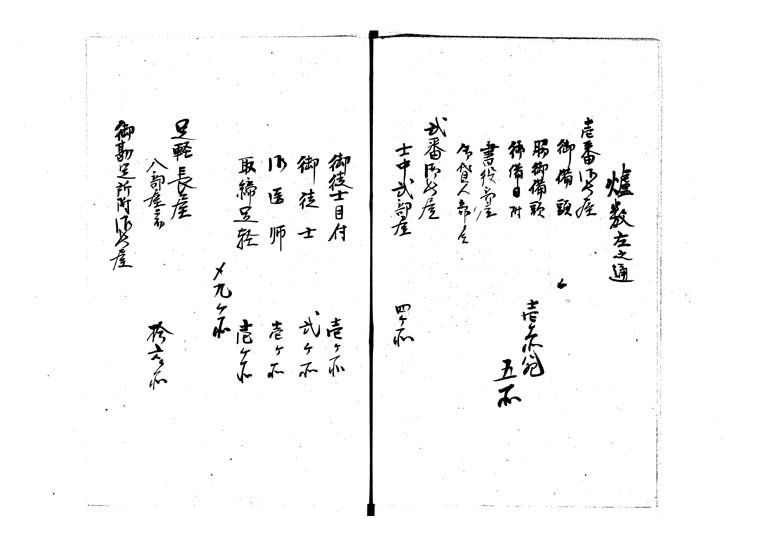 爐数左之通
壱番御長屋
御備頭
脇御備頭
御備目附
書役部屋
壱ヶ所宛
五所
弐番御長屋
士中弐部屋 四ヶ所
御徒士目付 壱ヶ所
御徒士 弐ヶ所
御医師 壱ヶ所
取締足軽 壱ヶ所
〆九ヶ所
足軽長屋
八部屋 拾六ヶ所
御勘定所附御長屋